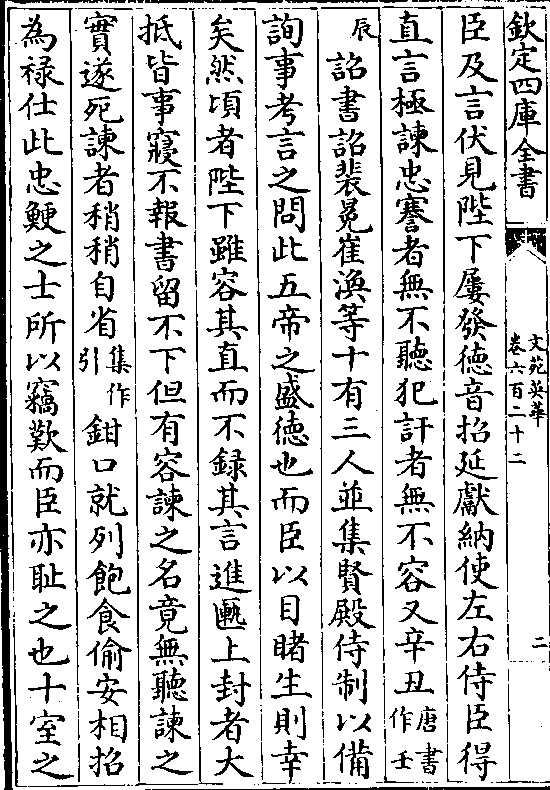 欽定四庫全書
文苑英華
卷六百二十二
二
臣及言伏見陛下屢發德音招延獻納使左右侍臣得
直言極諫忠謇者無不聽犯訐者無不容又辛丑唐書作壬
辰詔書詔裴冕崔渙等十有三人並集賢殿待制以備
詢事考言之問此五帝之盛德也而臣以目睹生則幸
矣然頃者陛下雖容其直而不録其言進匭上封者大
抵皆事寢不報書留不下但有容諫之名竟無聽諫之
實遂死諫者稍稍自省集作引鉗口就列飽食偷安相招
為禄仕此忠鯁之士所以竊歎而臣亦恥之也十室之